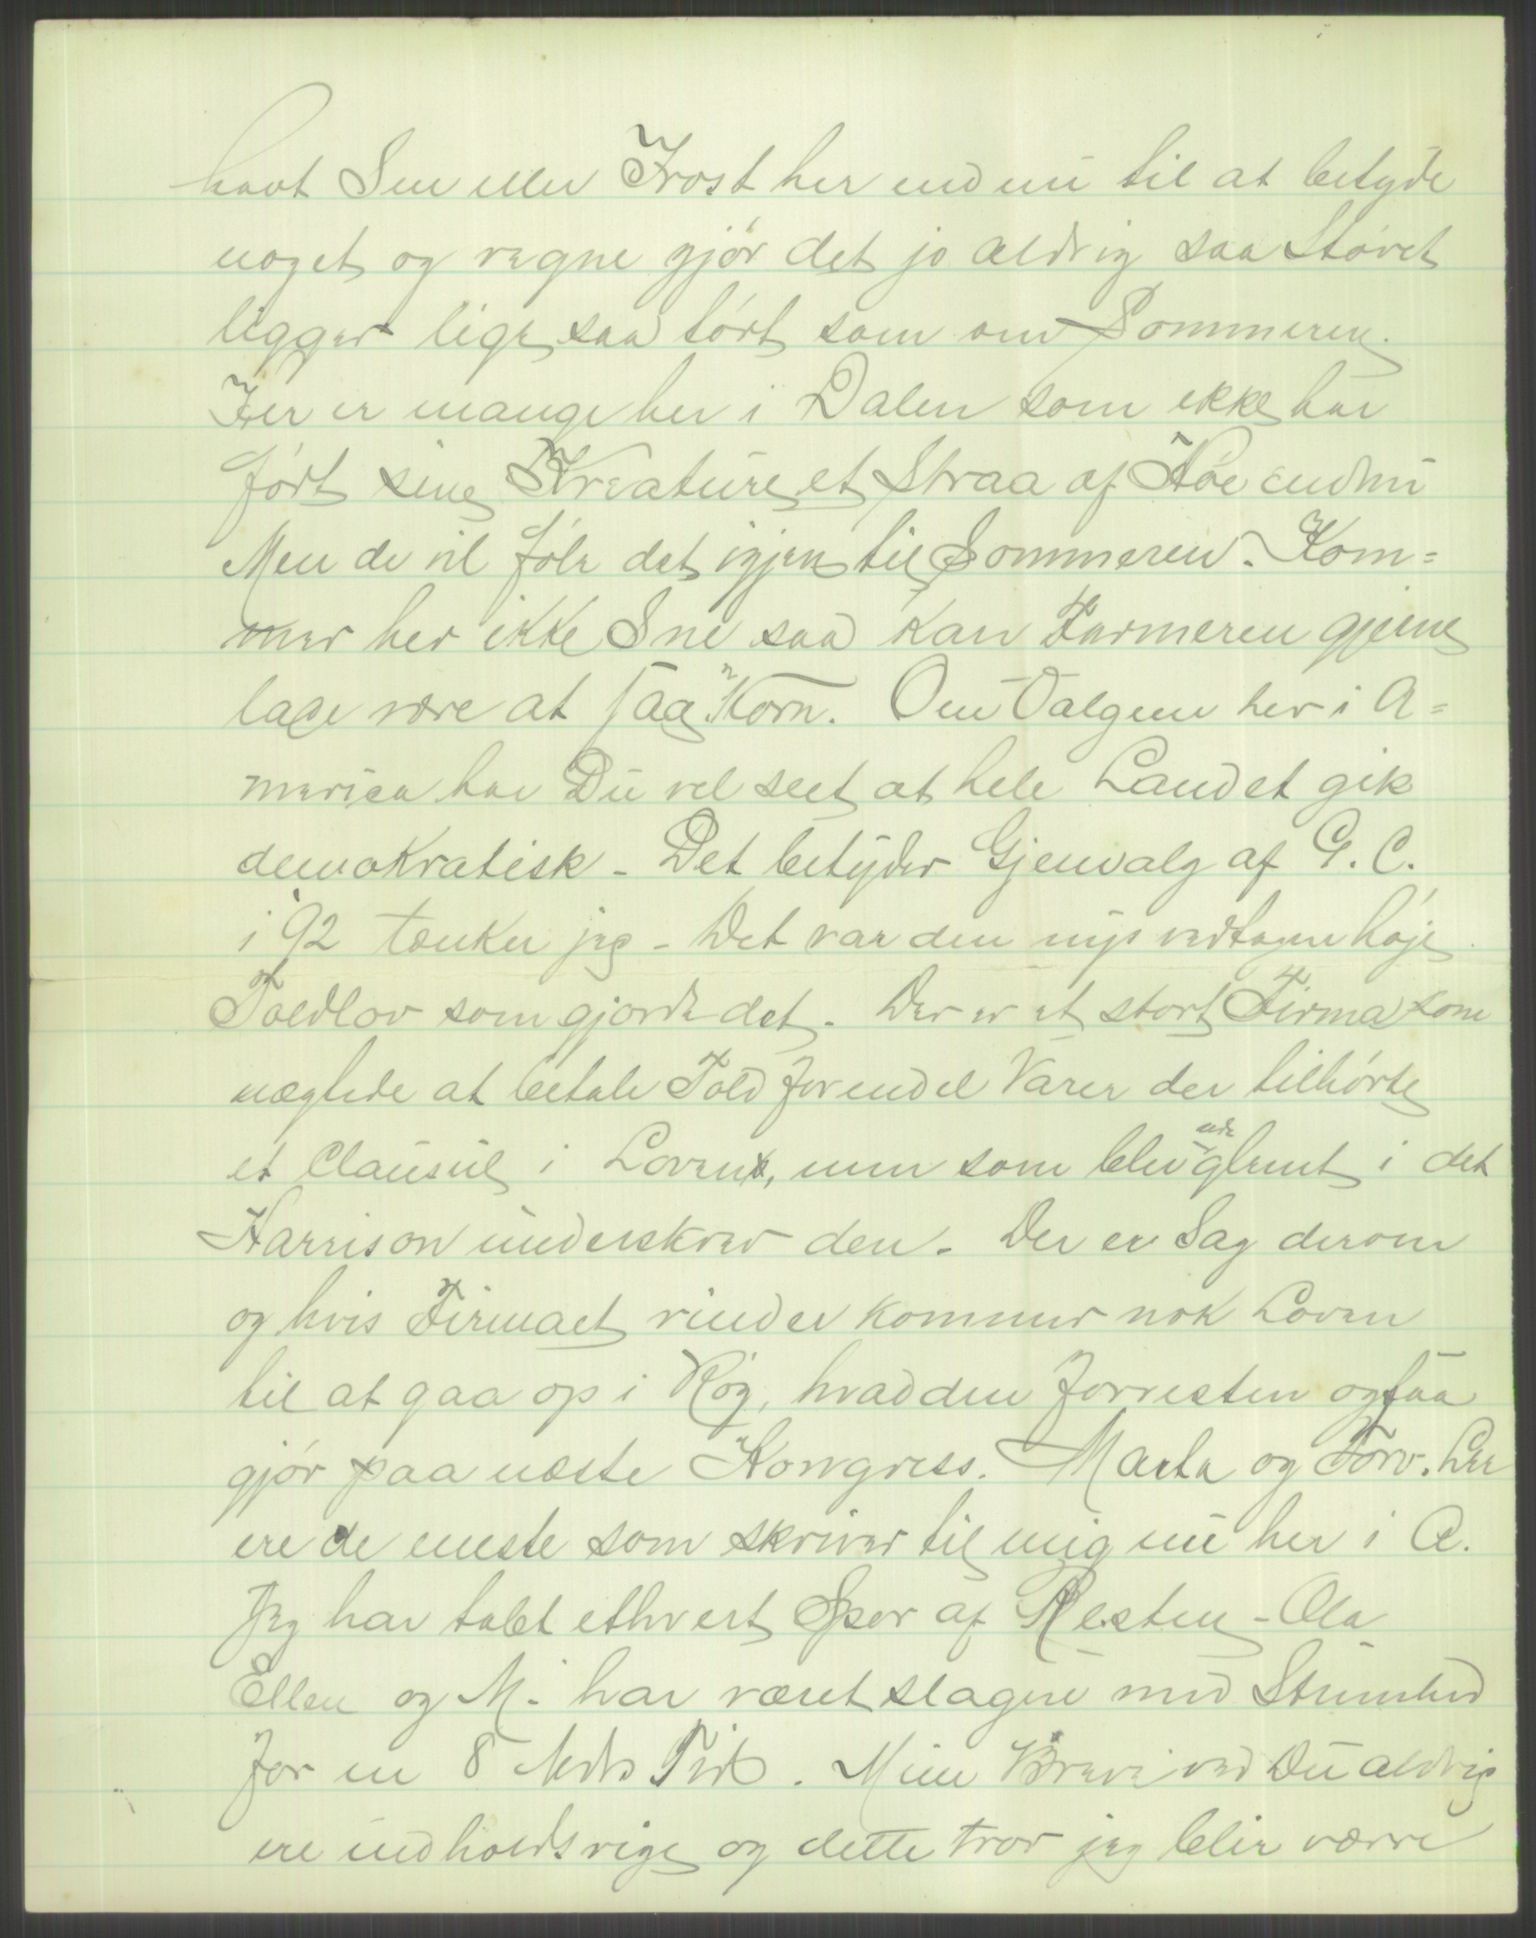 havt Sne eller Frost her endnu til at betyde
noget og regne gjør det jo aldrig saa Støvet
ligger lige saa tørt som om Sommeren.
Her er mange her i Dalen som ikke har
fört sine Kreature et Straa af Höe endnu
Men de vil føle det igjen til Sommeren. Kom=
mer her ikke Sne saa kan Farmeren gjerne
lade være at saa Korn. Om Valgene her i A=
merica har Du vel seet at hele Landet gik
demokratisk - Det betyder Gjenvalg af G. C.
i 92 tænker jeg - Det var den nys vedtagne høje
Toldlov som gjorde det. Der er et stort Firma som
nægtede at betale Told for endel Varer der tilhørte
et Clausul i Loven, men som blev glemt i det
Harrison underskrev den. Der er Sag derom
og hvis Firmaet vinder kommer nok Loven
til at gaa op i Røg, hvad den forresten ogsaa
gjör paa næste Kongress. Marta og Torv. Lee
ere de eneste som skriver til mig nu her i A.
Jeg har tabt ethvert Spor af Resten - Ola
Ellen og M. har været slagne med Stumhed
for en 8 Mds Tid. Mine Breve ved Du aldrig
ere indholdsrige og dette tror jeg blir værre